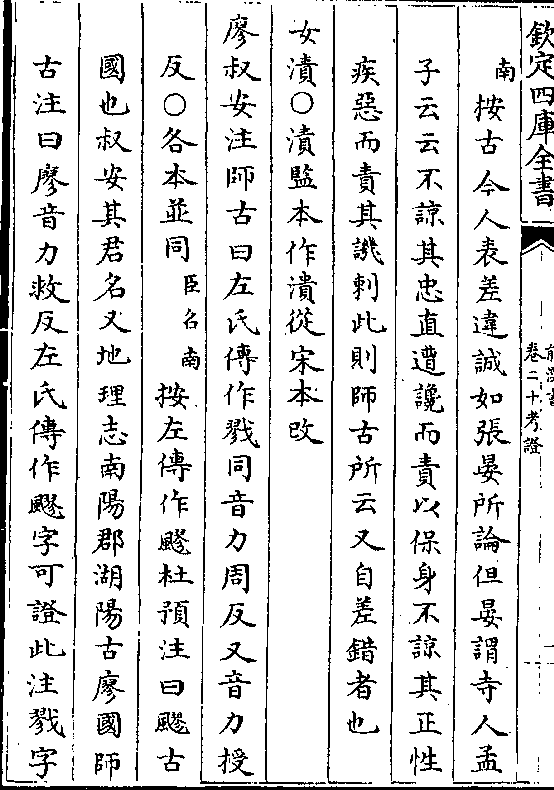 欽定四庫全書
前漢書
卷二十考證
南按古今人表差違誠如張晏所論但晏謂寺人孟
子云云不諒其忠直遭讒而責以保身不諒其正性
疾惡而責其譏刺此則師古所云又自差錯者也
女漬○漬監本作潰從宋本改
廖叔安注師古曰左氏傳作戮同音力周反又音力授
反○各本並同臣召南按左傳作飂杜預注曰飂古
國也叔安其君名又地理志南陽郡湖陽古廖國師
古注曰廖音力救反左氏傳作飂字可證此注戮字